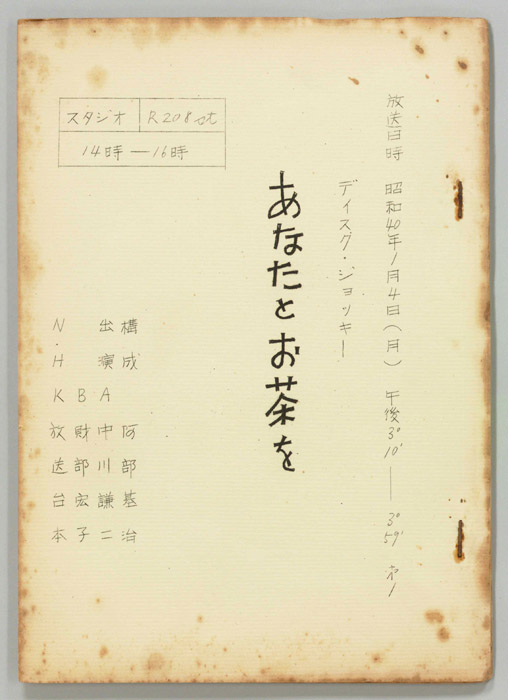 放送日時 昭和40年1月4日(月) 午後3°10′―3°59′ ホ1
ディスク・ジョッキー
あなたとお茶を
スタジオ R208st
14時―16時
構成 阿部基治
出演 A 中川謙二
B 財部宏子
N・HK放送台本